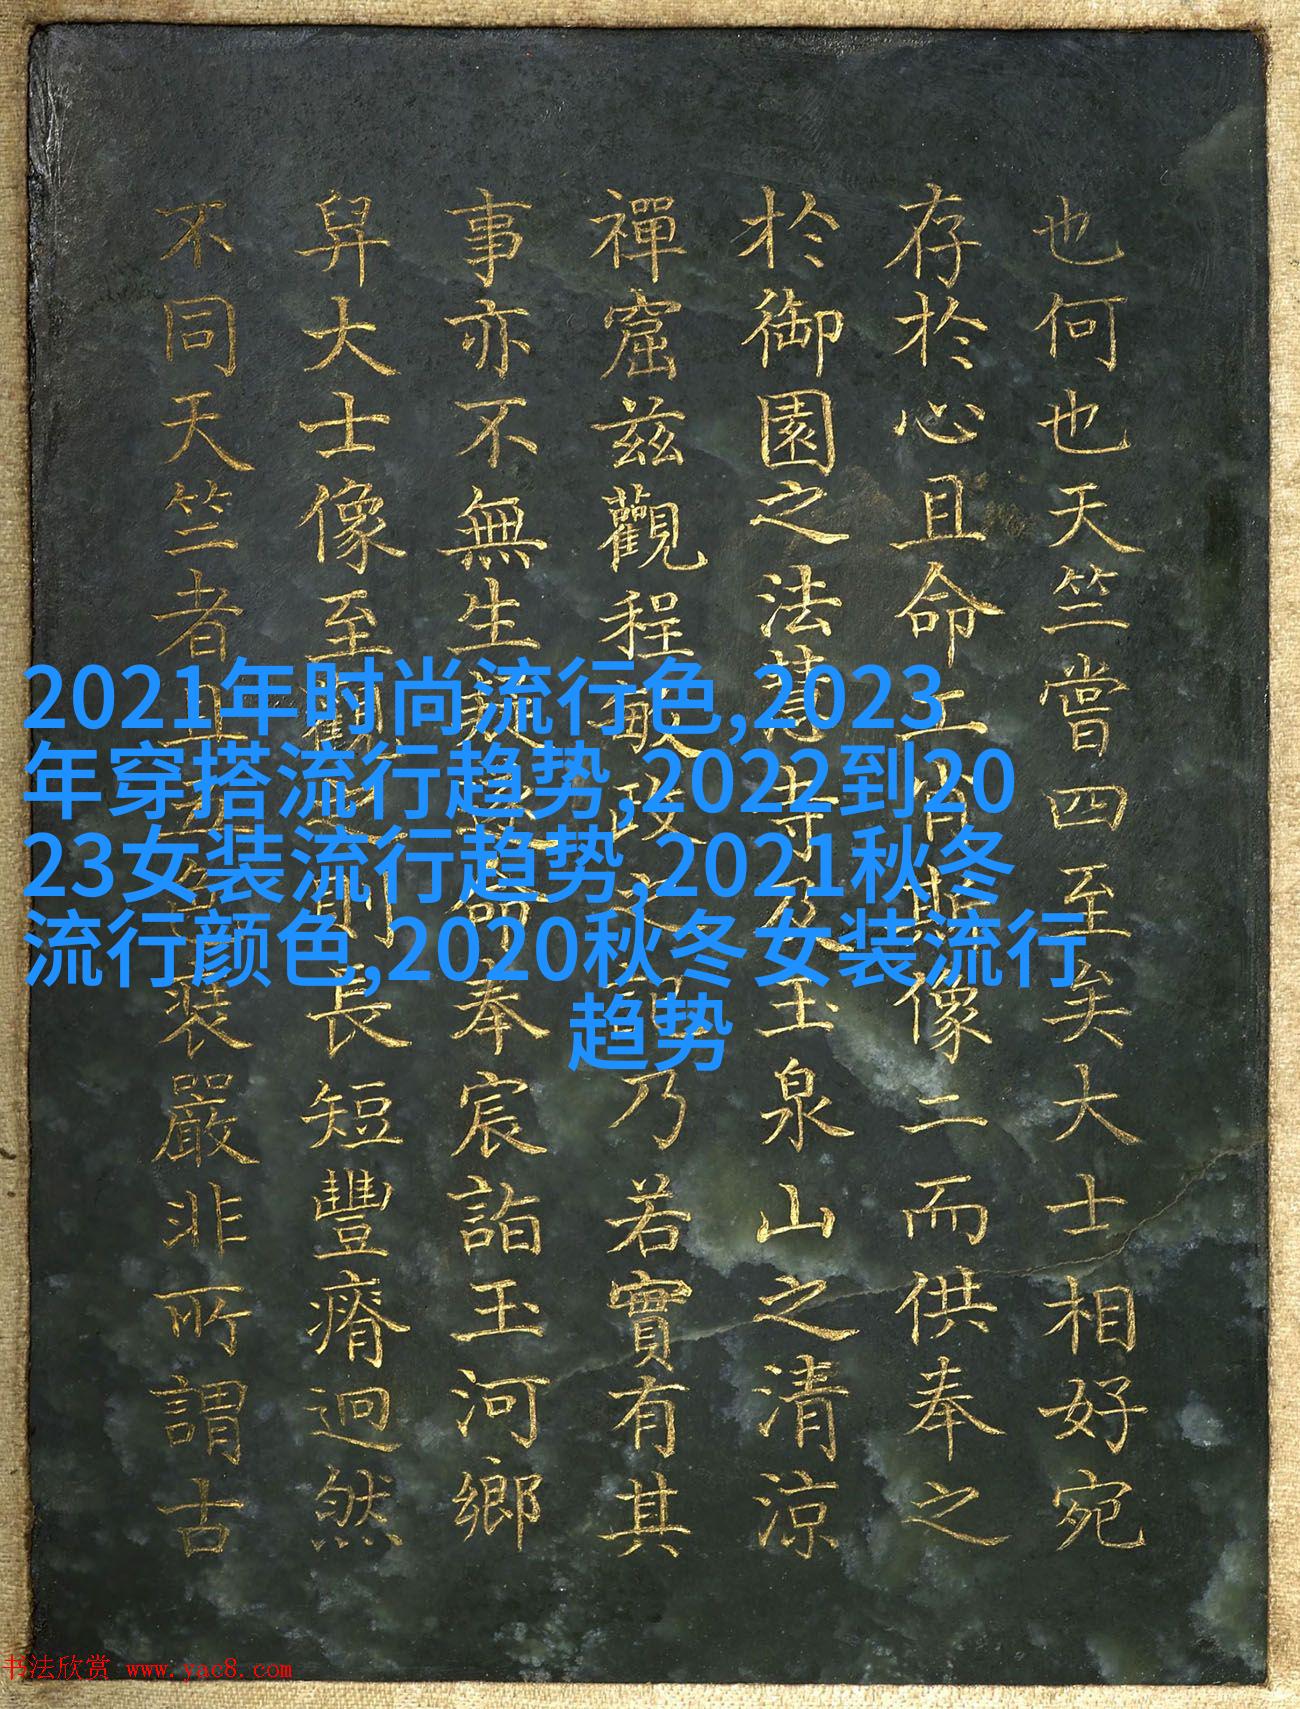 2021年时尚流行色,2023
年穿搭流行趋势,2022到20
23女装流行趋势,2021秋冬
流行颜色,2020秋冬女装流行
趋势
也何也天竺嘗四至矣大士相好宛
存於心且命工肖斯像二而供奉之
於御園之法慧寺及玉泉山之清涼
禪窟茲觀程敏政記乃若實有其
事亦不無生疑爰命奉宸詣玉河鄉
舁大士像至觀之則長短豐瘠迥然
不同天竺者且色裝嚴非所謂古
书法欣赏 www.yac8.com